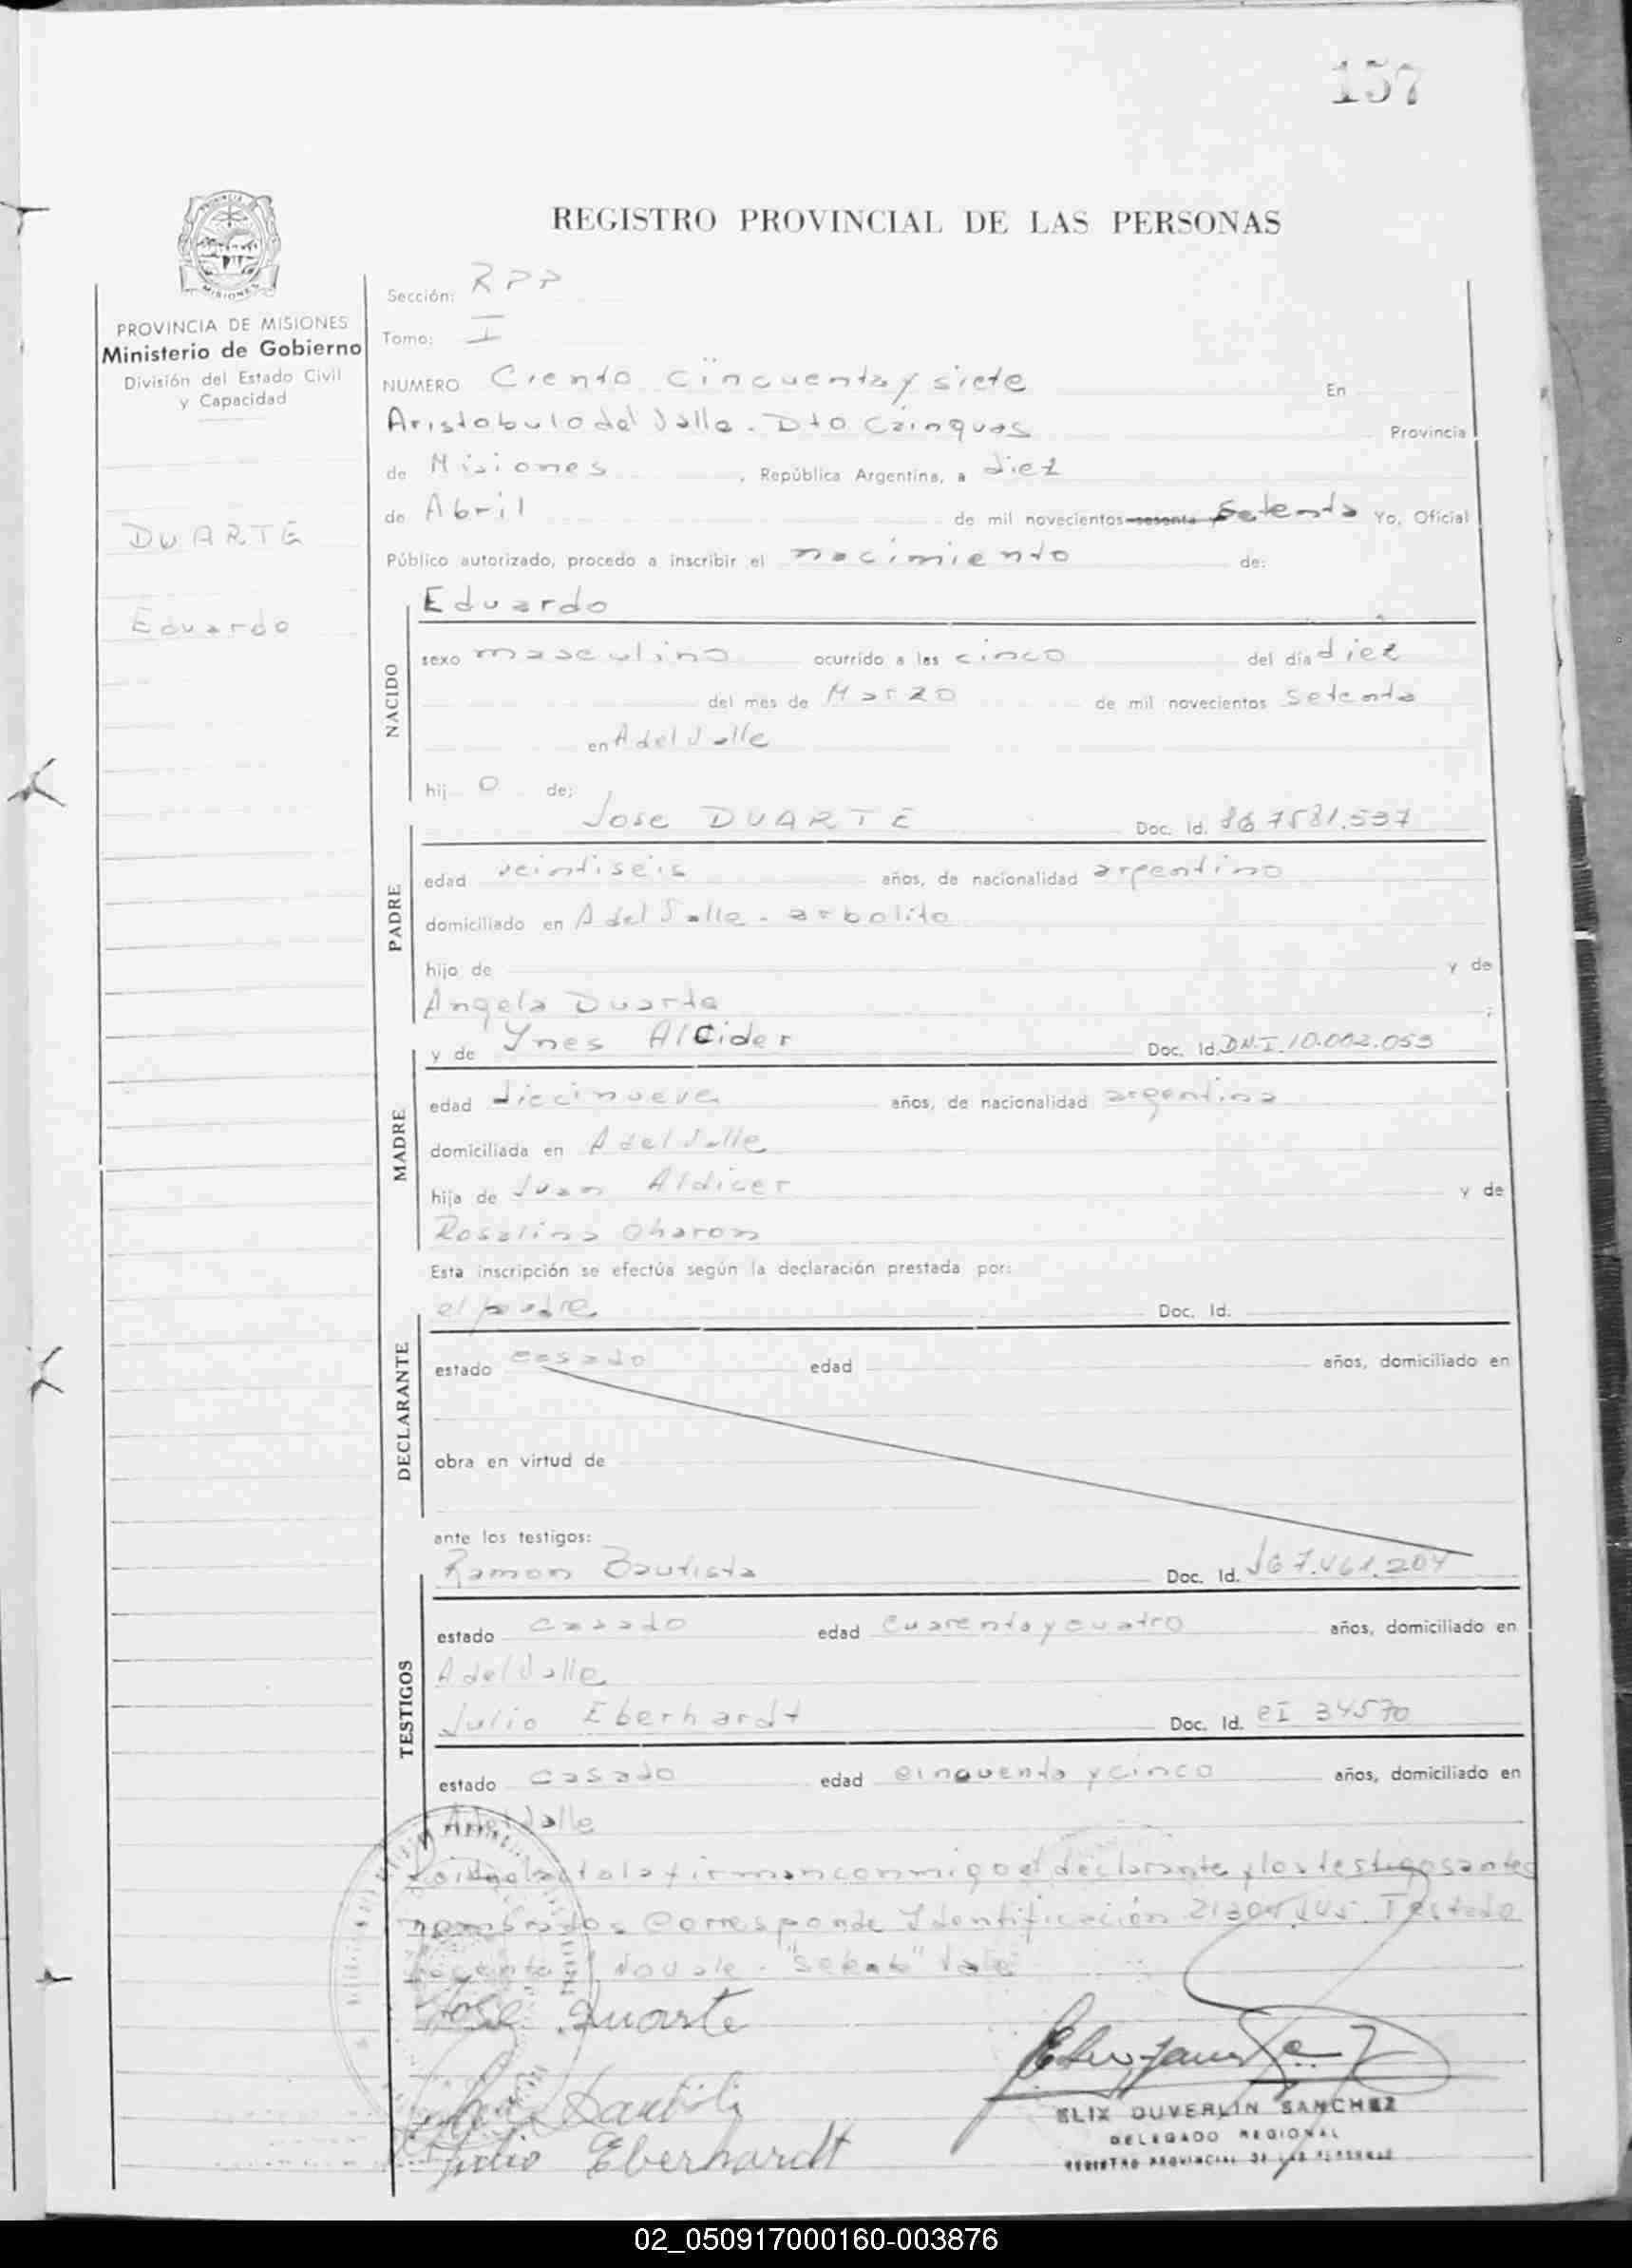 157
REGISTRO PROVINCIAL DE LAS PERSONAS
MISIONES
PROVINCIA DE MISIONES
Ministerio de Gobierno
División del Estado Civil
y Capacidad
DUARTE
Eduardo
Sección: RPP
Tomo: I
NUMERO Ciento cincuenta y siete En
Aristobulo del Valle - Dto Cainguas Provincia
de Misiones, República Argentina, a diez
de Abril de mil novecientos sesenta y Setenta Yo, Oficial
Público autorizado, procedo a inscribir el nacimiento de:
Eduardo
NACIDO
sexo masculino ocurrido a las cinco del día diez
del mes de Marzo de mil novecientos Setenta
en A del Valle
hij o de:
Jose DUARTE Doc. Id.
PADRE
edad veintiseis años, de nacionalidad argentino
domiciliado en A del Valle - arbolito
hijo de y de
Angela Duarte ;
y de Ynes Alcider Doc. Id. DN.I. 10.002.053
MADRE
edad diecinueve años, de nacionalidad argentina
domiciliada en A del Valle
hija de Juan Aldicer y de
Rosalina
Esta inscripción se efectúa según la declaración prestada por:
el padre Doc. Id.
DECLARANTE
estado casado edad años, domiciliado en
obra en virtud de
ante los testigos:
Ramon Bautista Doc. Id.
TESTIGOS
estado casado edad cuarenta y cuatro años, domiciliado en
A del Valle
Julio Eberhardt Doc. Id. CI 34570
estado casado edad cinquenta y cinco años, domiciliado en
A del Valle
Leida el acta la firman conmigo el declarante y los testigos antes
nombrados Corresponde Identificación Testado
no vale - "Setenta" Vale
Jose Duarte
Bautista
Julio Eberhardt
ELIX DUVERLIN SANCHEZ
DELEGADO REGIONAL
REGISTRO PROVINCIAL DE LAS PERSONAS
02_050917000160-003876